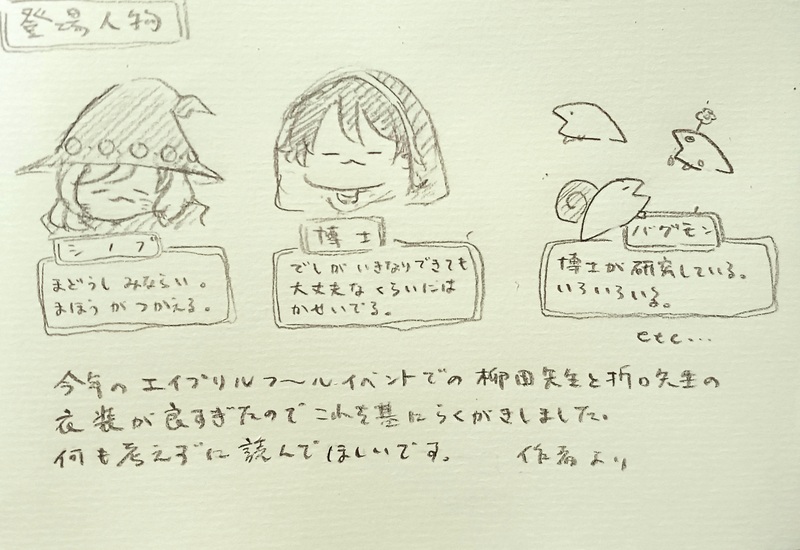 登場人物
シープ
まどうし みならい。
まほう が つかえる。
博士
でしが いきなりできても
大丈夫な くらいには
かせいでる。
バグモン
博士が 研究している。
いろいろいる。
etc...
今年の エイプリルフールイベントでの 柳田先生と折口先生の
衣装が良すぎたので これを基にらくがきしました。
何も考えずに 読んでほしいです。 作者より